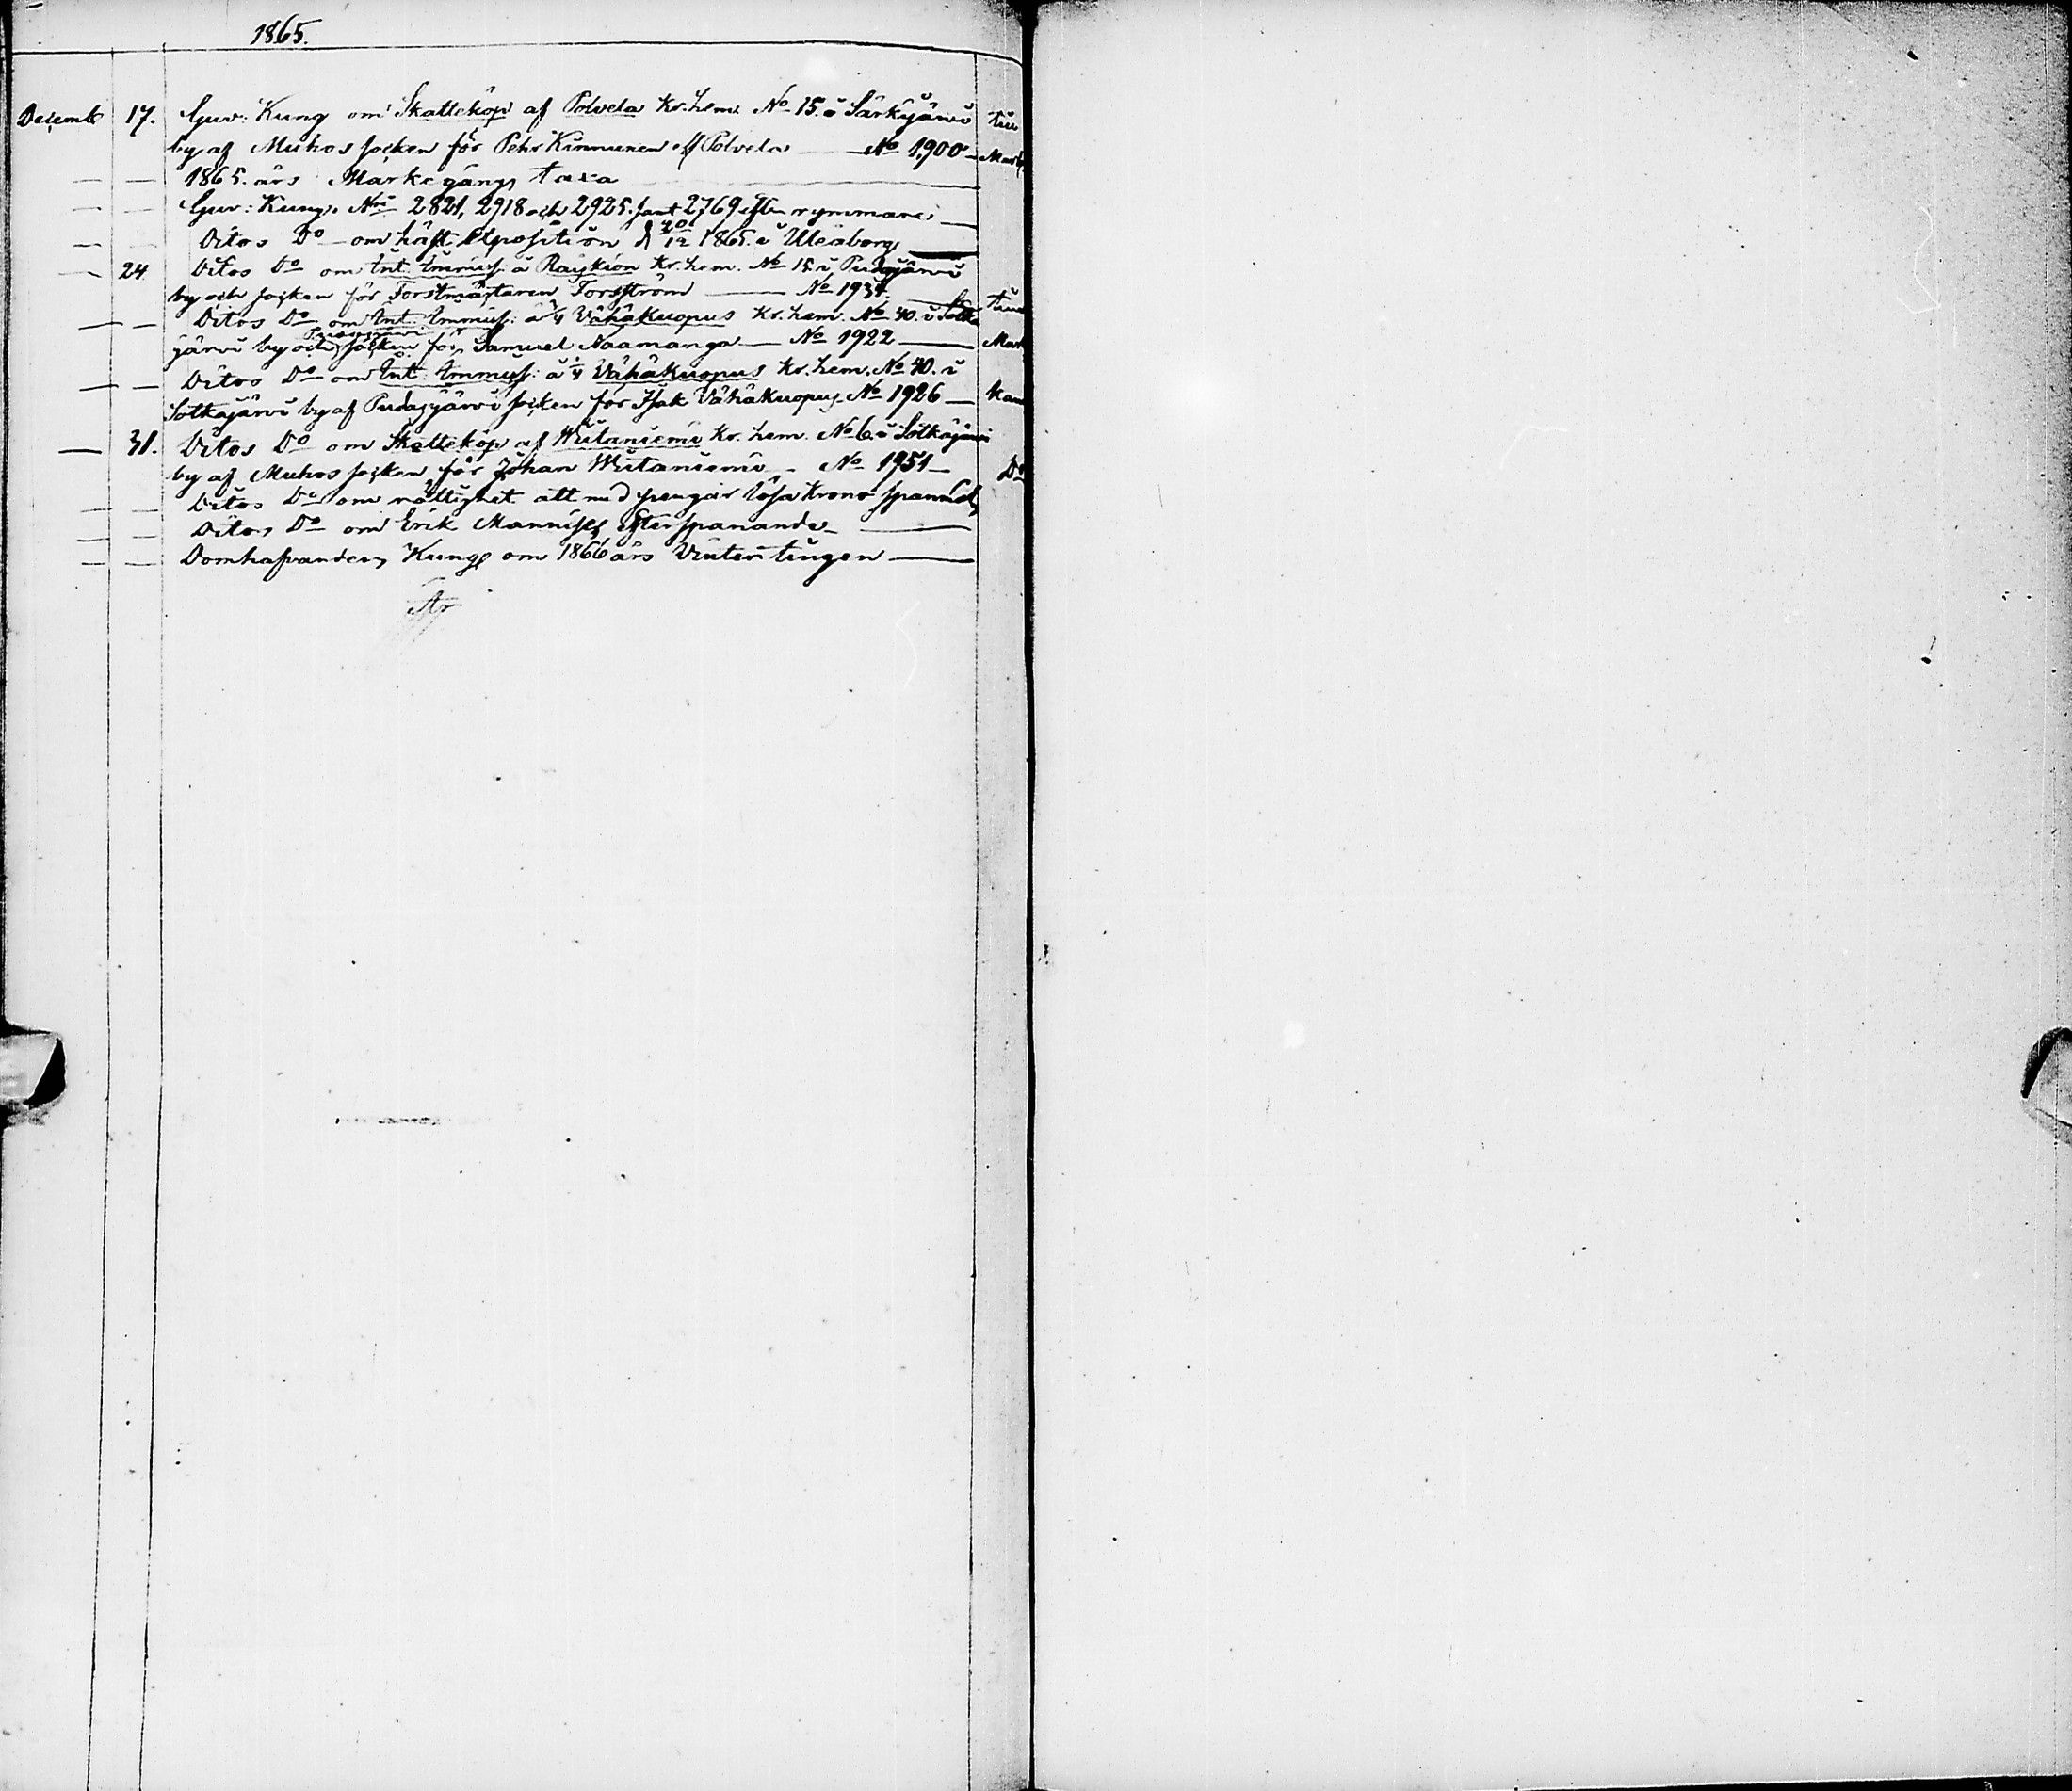 1865.
Decemb 17. Guv: Kung om Skatteköp af Polvela Kr. hem. No 15. i Särkijärvi
by af Muhos socken för Pehr Kinnunen ell Polvela — No 1,900 —
— — 1865. års Markegångs taxa
— — Guv: Kung. Nris 2821, 2918 och 2925. samt 2769 efter rymmare
— — Ditos Do om häst Exposition d 20/12 1865. i Uleåborg
— 24 Ditos Do om Int. Immiss: å Raiskion Kr. hem. No 15. i Pudasjärvi
by och socken för Forstmästaren Forsström — No 1934.
— — Ditos Do om Int. Immiss: å 1/4 Vähäkuopus Kr. hem. No 40. i Sotka
järvi by och Pudasjärvi socken för Samuel Naamanga — No 1922 —
— — Ditos Do om Int: Immiss: å 1/4 Vähäkuopus Kr. hem. No 40. i
Sotkajärvi by af Pudasjärvi socken för Isak Vähäkuopus No 1926 —
— 31. Ditos Do om Skatteköp af Witaniemi Kr. hem. No 6. i Sotkajärvi
by af Muhos socken för Johan Witaniemi — No 1951 — Do
— — Ditos Do om rättighet att med pengar lösa Krono spanmål
— — Ditos Do om Erik Mannises efterspanande
— — Domhafvandens Kung om 1866 års Vinter tingen —